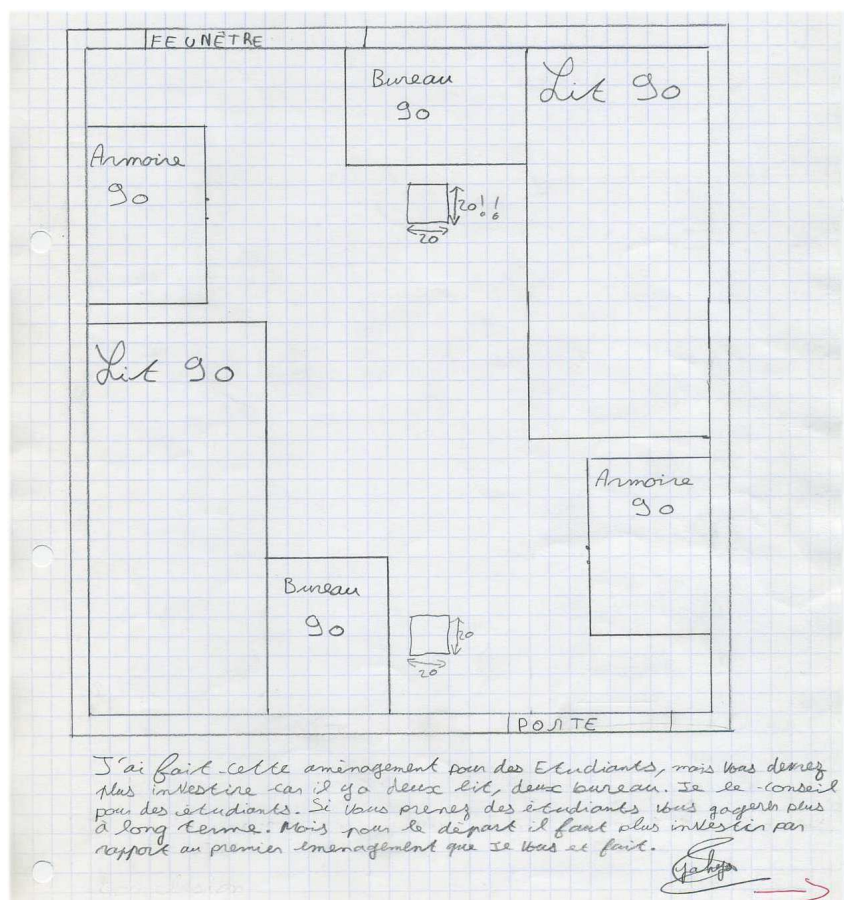 FEUNÊTRE
Bureau
90
Lit 90
Armoire
90
20!!
20
Lit 90
Armoire
90
Bureau
90
20
20
PORTE
J'ai fait cette aménagement pour des Etudiants, mais vous devrez
plus investire car il ya deux lit, deux bureau. Je le conseil
pour des étudiants. Si vous prenez des étudiants vous gagerer plus
à long terme. Mais pour le départ il faut plus investir par
rapport au premier emenagement que Je vous et fait.